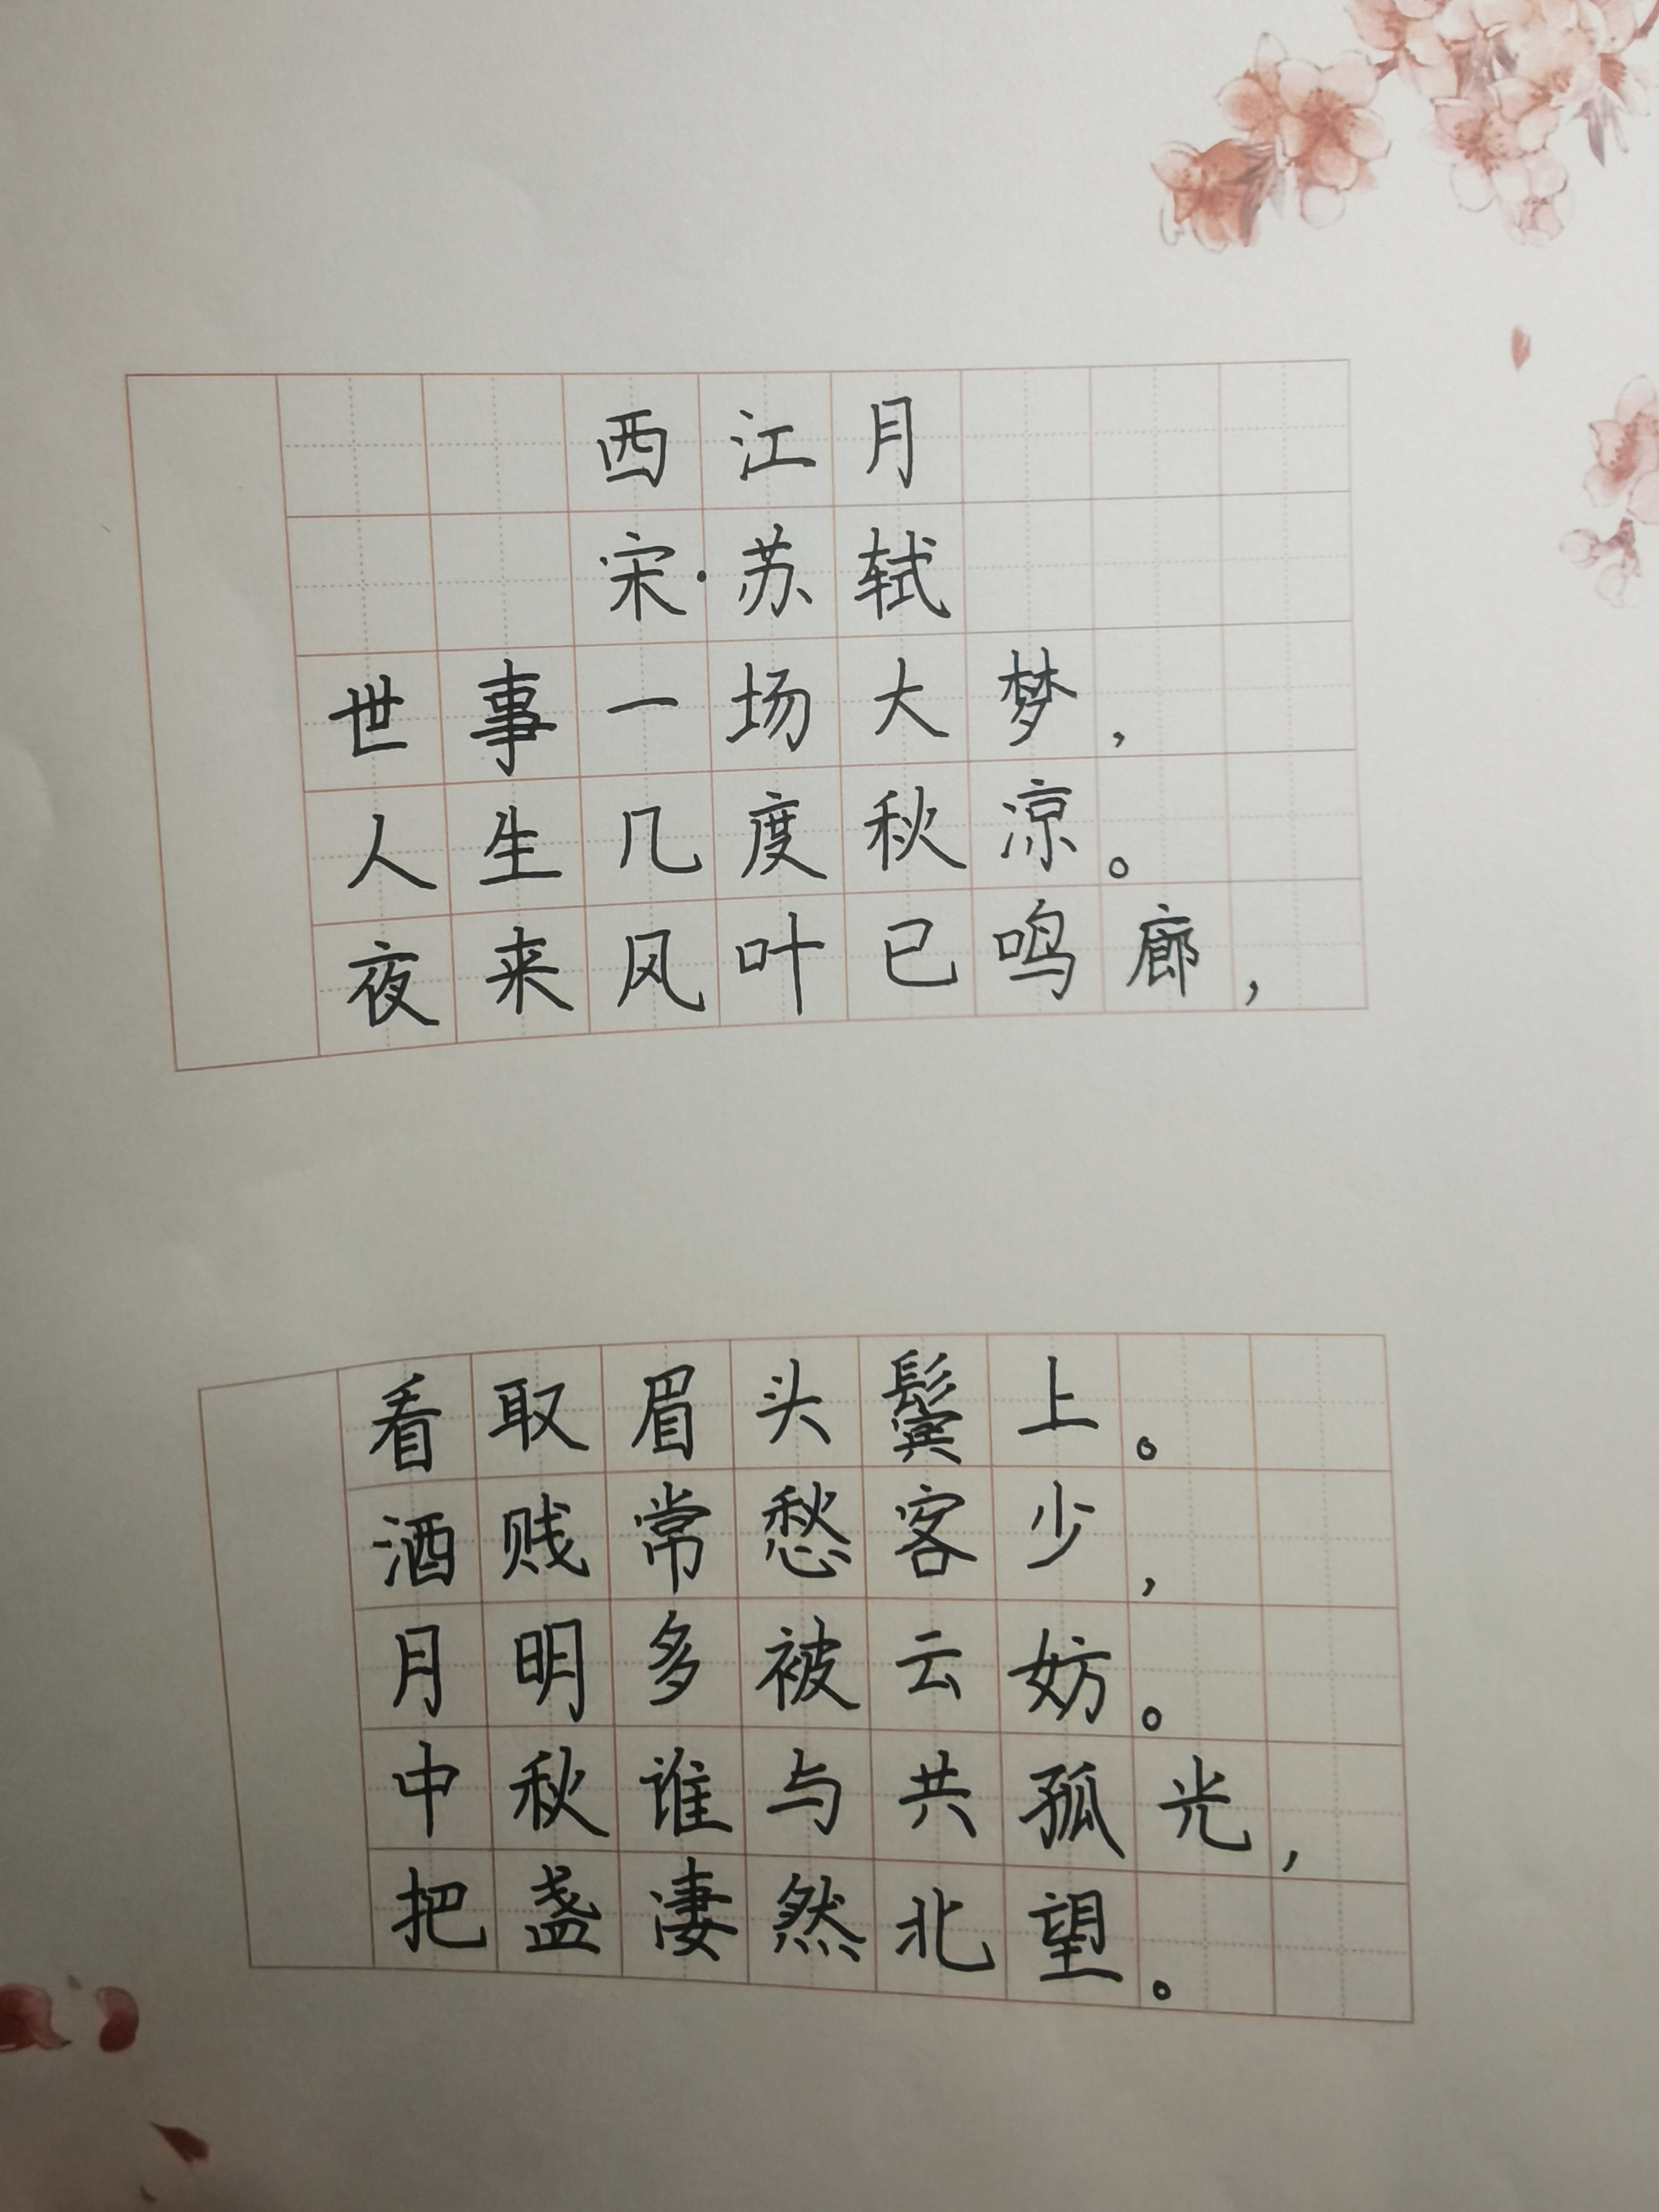 西江月
宋·苏轼
世事一场大梦，
人生几度秋凉。
夜来风叶已鸣廊，
看取眉头鬓上。
酒贱常愁客少，
月明多被云妨。
中秋谁与共孤光，
把盏凄然北望。